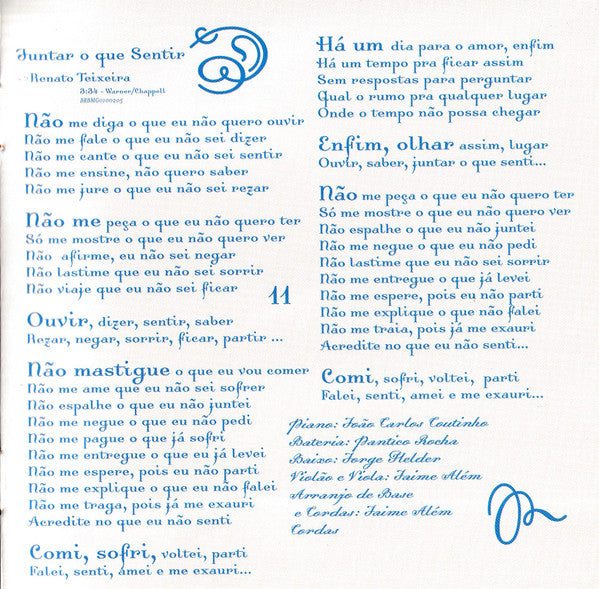 Juntar o que Sentir
Renato Teixeira
3:34 - Warner/Chappell
BRBMG0100205
Não me diga o que eu não quero ouvir
Não me fale o que eu não sei dizer
Não me cante o que eu não sei sentir
Não me ensine, não quero saber
Não me jure o que eu não sei rezar
Não me peça o que eu não quero ter
Só me mostre o que eu não quero ver
Não afirme, eu não sei negar
Não lastime que eu não sei sorrir
Não viaje que eu não sei ficar
11
Ouvir, dizer, sentir, saber
Rezar, negar, sorrir, ficar, partir ...
Não mastigue o que eu vou comer
Não me ame que eu não sei sofrer
Não espalhe o que eu não juntei
Não me negue o que eu não pedi
Não me pague o que já sofri
Não me entregue o que eu já levei
Não me espere, pois eu não parti
Não me explique o que eu não falei
Não me traga, pois já me exauri
Acredite no que eu não senti
Comi, sofri, voltei, parti
Falei, senti, amei e me exauri...
Há um dia para o amor, enfim
Há um tempo pra ficar assim
Sem respostas para perguntar
Qual o rumo pra qualquer lugar
Onde o tempo não possa chegar
Enfim, olhar assim, lugar
Ouvir, saber, juntar o que senti...
Não me peça o que eu não quero ter
Só me mostre o que eu não quero ver
Não espalhe o que eu juntei
Não me negue o que eu não pedi
Não lastime que eu não sei sorrir
Não me entregue o que já levei
Não me espere, pois eu não parti
Não me explique o que não falei
Não me traia, pois já me exauri
Acredite no que eu não senti...
Comi, sofri, voltei, parti
Falei, senti, amei e me exauri...
Piano: João Carlos Coutinho
Bateria: Pantico Rocha
Baixo: Jorge Helder
Violão e Viola: Jaime Além
Arranjo de Base
e Cordas: Jaime Além
Cordas